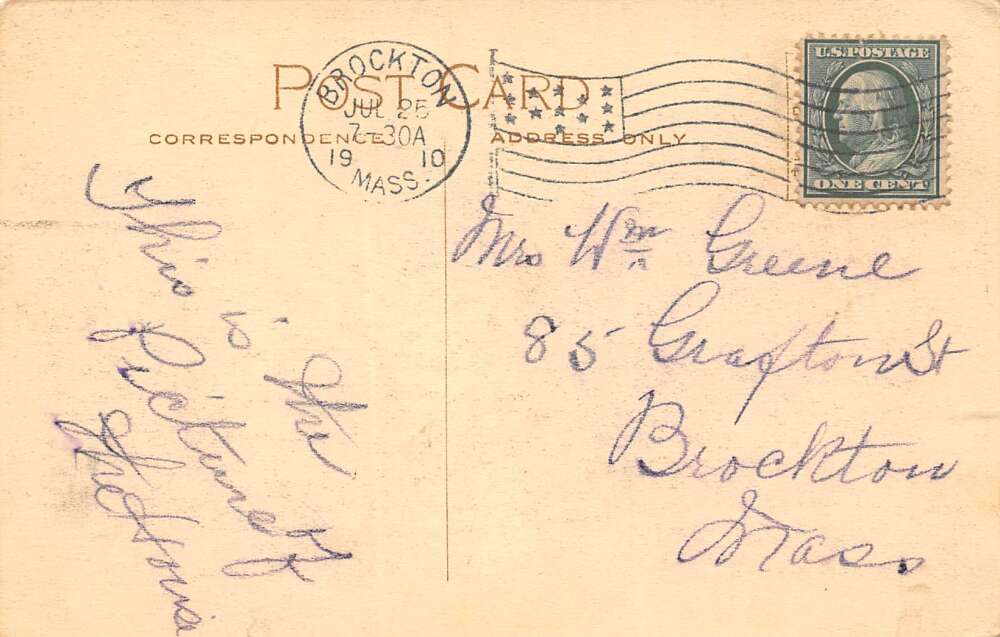 POST CARD
CORRESPONDENCE
ADDRESS ONLY
BROCKTON
JUL 25
7-30A
1910
MASS.
U.S. POSTAGE
ONE CENT
This is the
Picture of
the House
Mrs Wm Greene
85 Grafton St
Brockton
Mass.